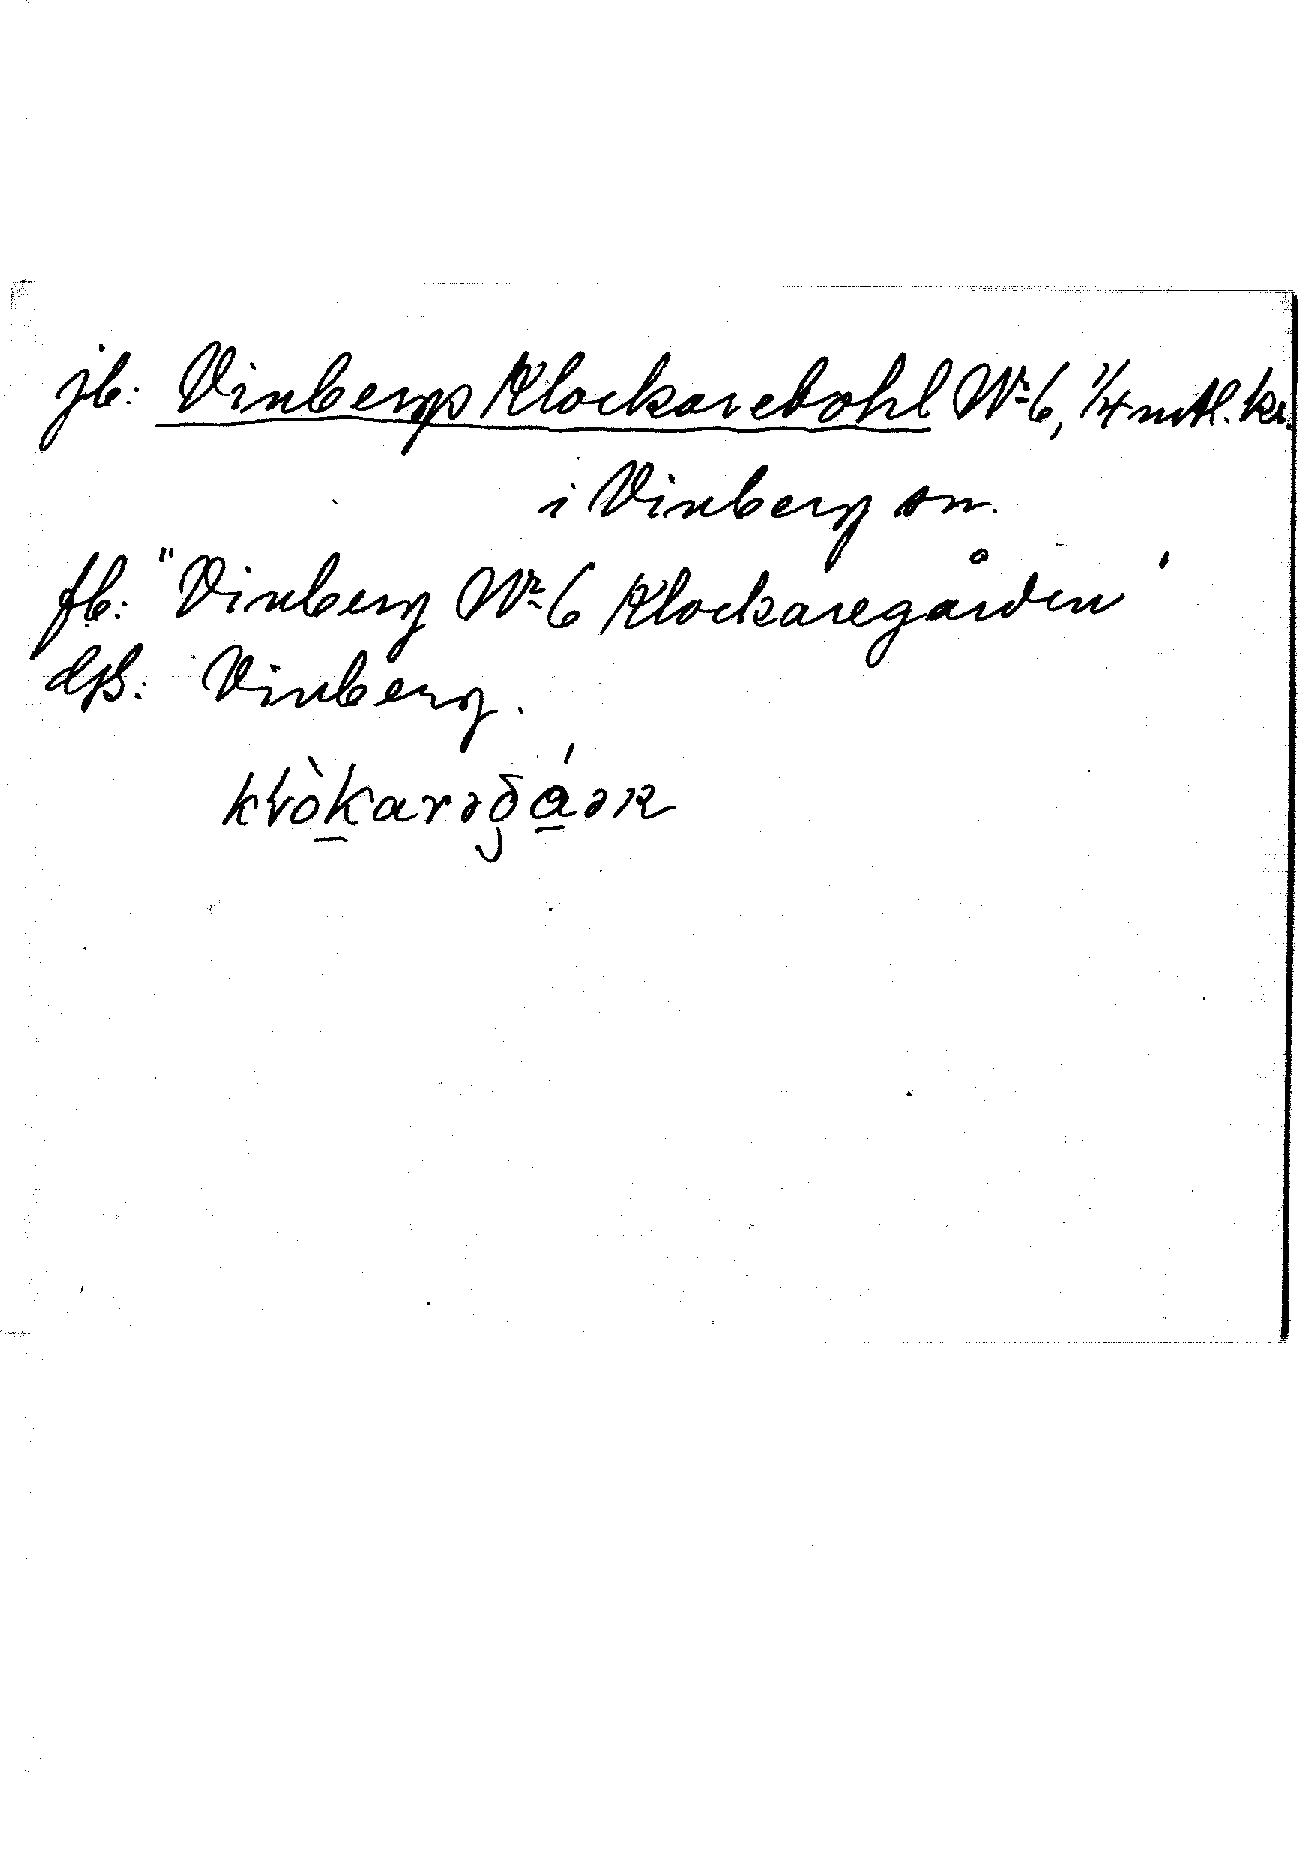 jb: Vinbergs Klockarebohl Nr 6, 1/4 mtl. kr.
i Vinberg sn.
fb: "Vinberg Nr 6 Klockaregården"
Vinberg.